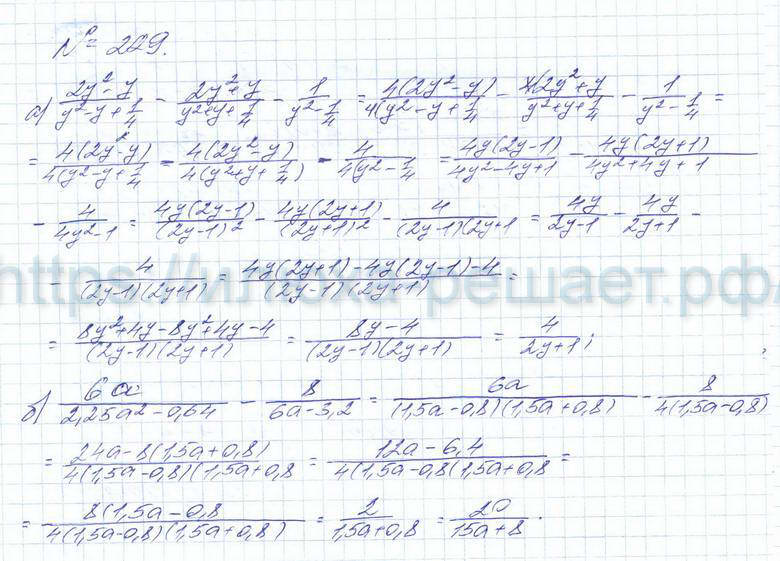 № 229.
а) (2y² - y)/(y² - y + 1/4) - (2y² + y)/(y² + y + 1/4) - 1/(y² - 1/4) = 4(2y² - y)/(4(y² - y + 1/4) - 4(2y² + y)/(y² + y + 1/4) - 1/(y² - 1/4) =
= 4(2y² - y)/(4(y² - y + 1/4) - 4(2y² - y)/(4(y² + y + 1/4)) - 4/(4(y² - 1/4) = 4y(2y-1)/(4y² - 4y + 1) - 4y(2y+1)/(4y² + 4y + 1)
- 4/(4y² - 1) = 4y(2y-1)/(2y-1)² - 4y(2y+1)/(2y+1)² - 4/((2y-1)(2y+1) = 4y/(2y-1) - 4y/(2y+1) -
- 4/((2y-1)(2y+1)) = (4y(2y+1) - 4y(2y-1) - 4)/((2y-1)(2y+1)) =
= (8y² + 4y - 8y² + 4y - 4)/((2y-1)(2y+1)) = (8y - 4)/((2y-1)(2y+1)) = 4/(2y+1);
б) 6a/(2,25a² - 0,64) - 8/(6a - 3,2) = 6a/((1,5a - 0,8)(1,5a + 0,8)) - 8/(4(1,5a - 0,8))
= (24a - 8(1,5a + 0,8))/(4(1,5a - 0,8)(1,5a + 0,8 = (12a - 6,4)/(4(1,5a - 0,8(1,5a + 0,8 =
= 8(1,5a - 0,8/(4(1,5a - 0,8)(1,5a + 0,8)) = 2/(1,5a + 0,8) = 20/(15a + 8).